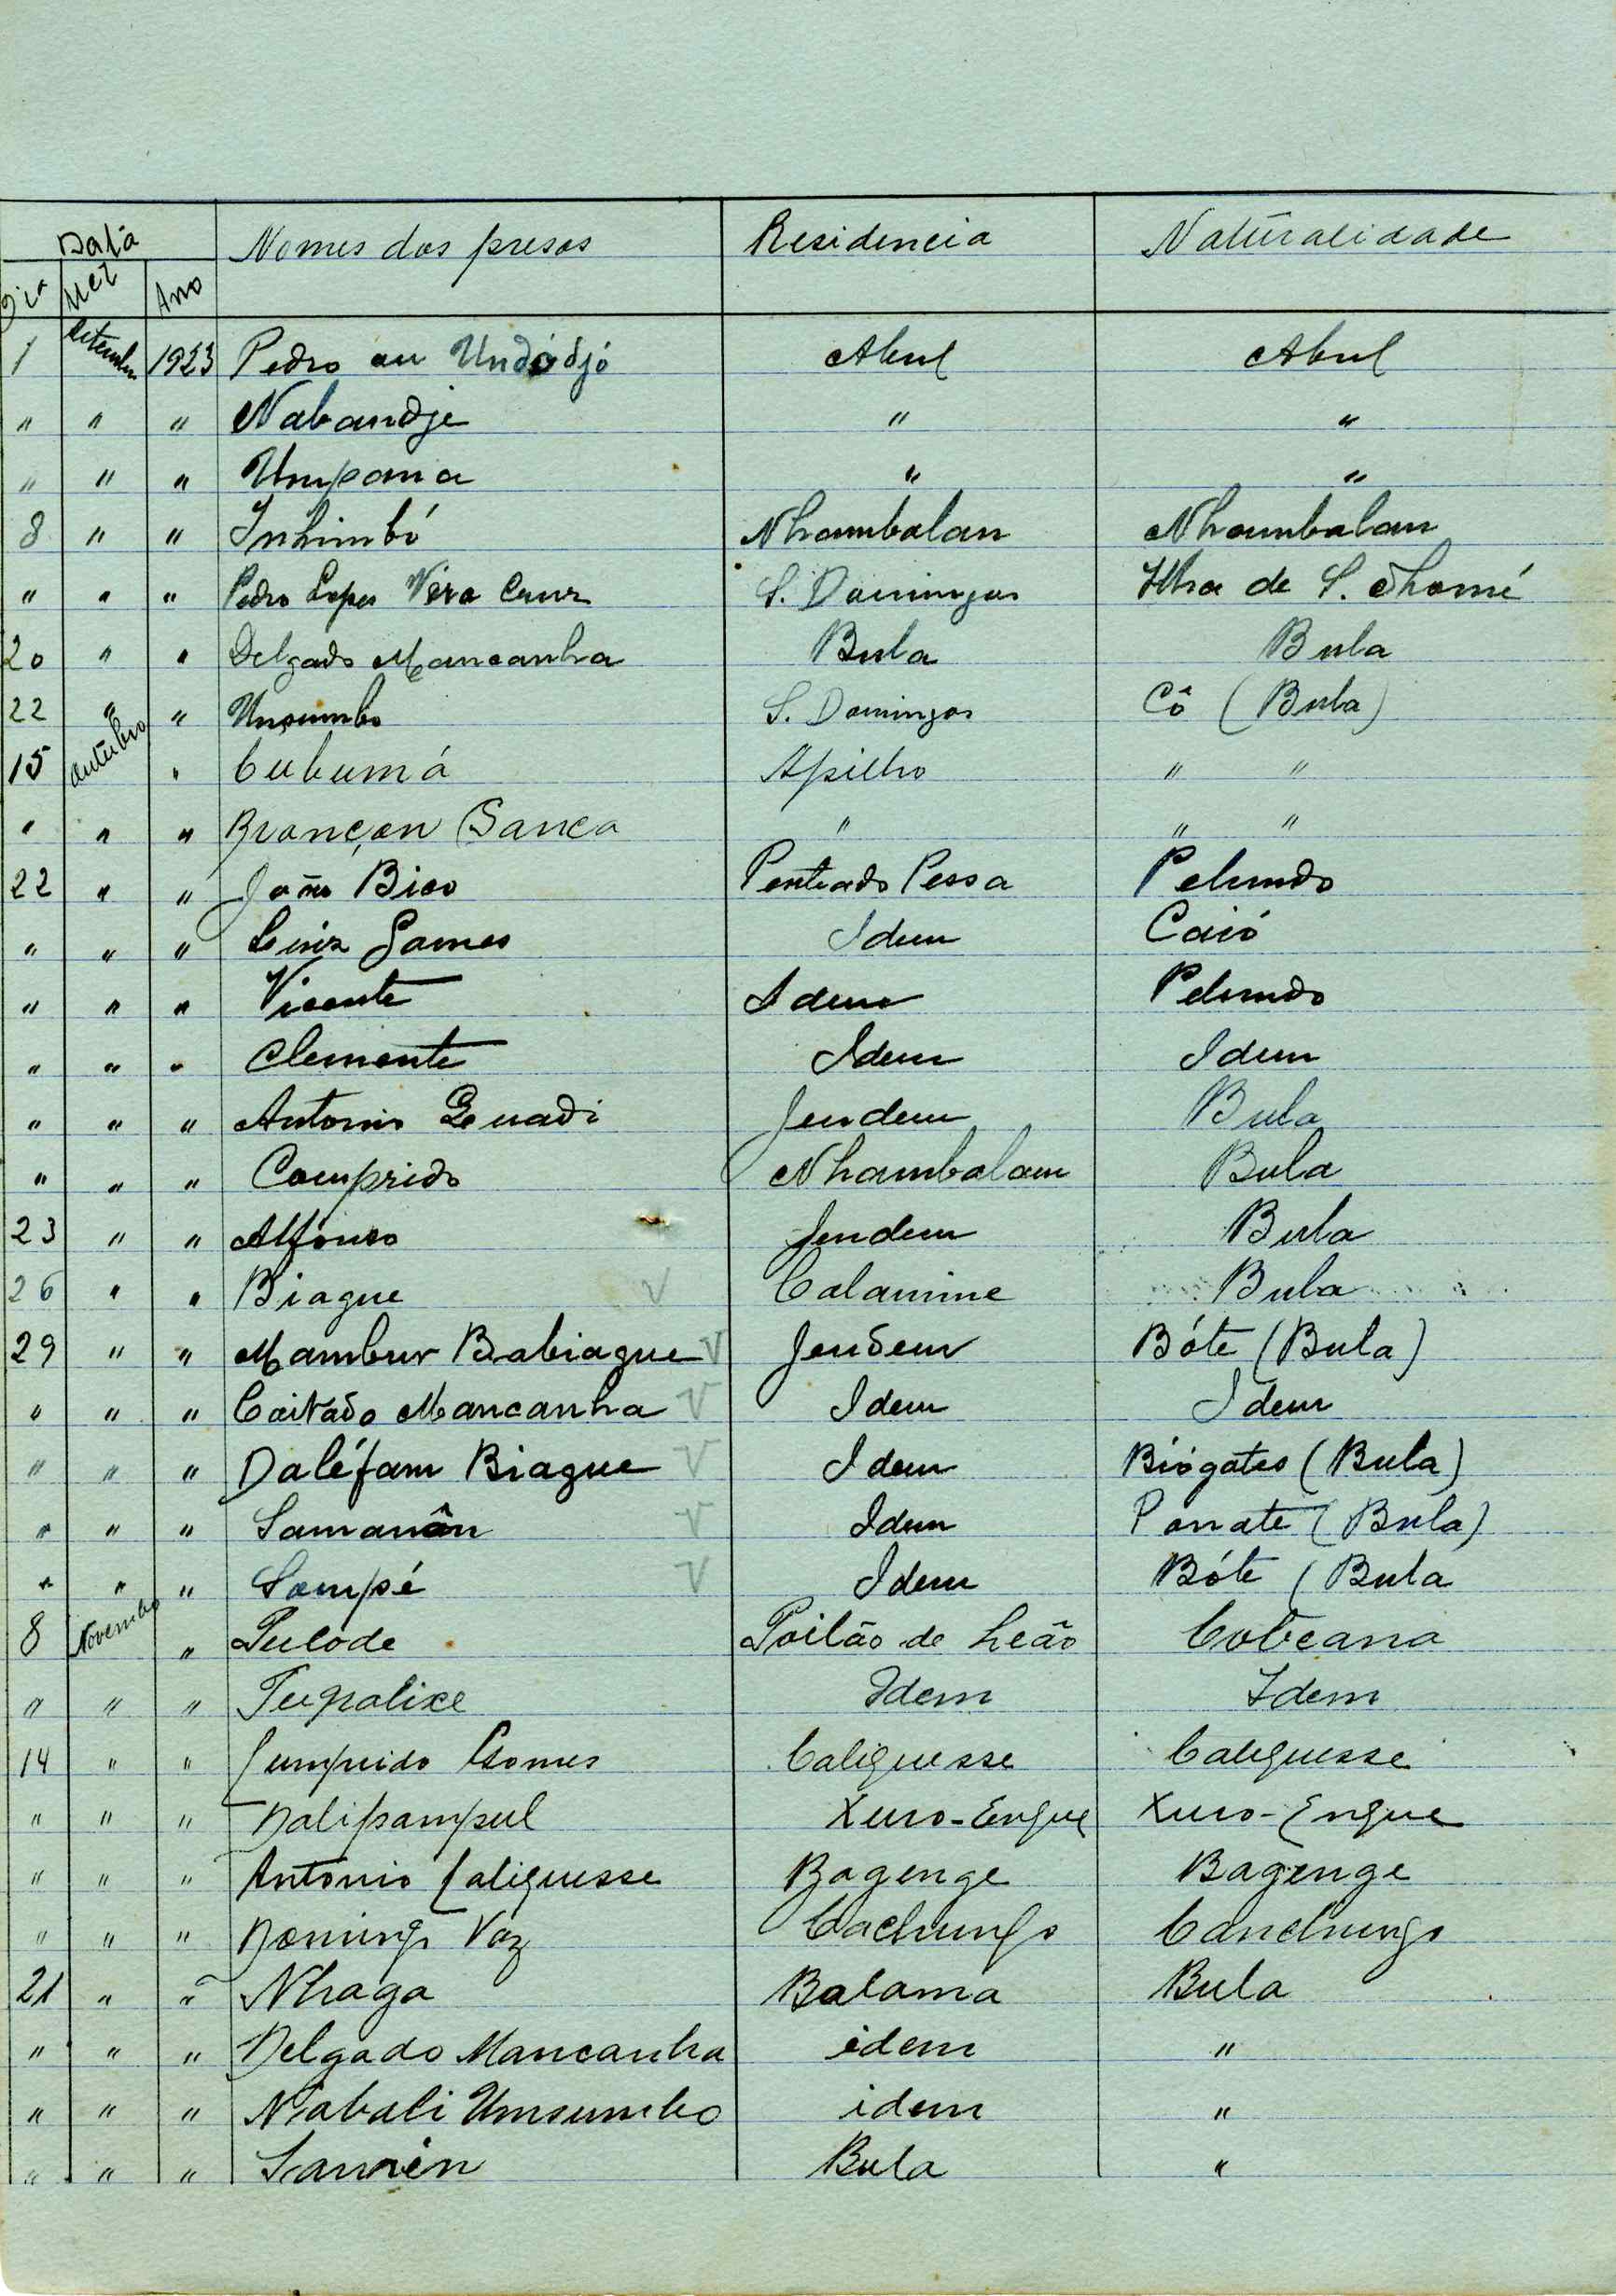 Data Nomes dos presos Residencia Naturalidade
Dia Mez Ano
1 Setembro 1923 Pedro ou Undódjó Abul Abul
" " " Nabandje " "
" " " Umpana " "
8 " " Inhimbó Nhambalan Nhambalan
" " " Pedro Lopes Véra Cruz S. Domingos Ilha de S. Thomé
20 " " Delgado Mancanha Bula Bula
22 " " Unsumbo S. Domingos Cô (Bula)
15 Outubro " Cubumá Apilho " "
" " " Brançan Sanca " " "
22 " " João Bico Penteado Pessa Pelundo
" " " Luiz Gomes Idem Caió
" " " Vicente Idem Pelundo
" " " Clemente Idem Idem
" " " Antonio Quadi Jendem Bula
" " " Comprido Nhambalam Bula
23 " " Alfonso Jendem Bula
26 " " Biague V Calamine Bula
29 " " Mambur Babiague V Jendem Bóte (Bula)
" " " Caitado Mancanha V Idem Idem
" " " Daléfam Biague V Idem Biógates (Bula)
" " " Samanân V Idem Panate (Bula)
" " " Sampé V Idem Bóte (Bula
8 Novembro " Pulode Poilão de Leão Cobeana
" " " Tupalixe Idem Idem
14 " " Cumprido Gomes Caliquesse Caliquesse
" " " Dalipampul Xuro-Engue Xuro-Engue
" " " Antonio Caliquesse Bagenge Bagenge
" " " Domingos Vaz Cachungo Canchungo
21 " " Nhaga Balama Bula
" " " Delgado Mancanha idem "
" " " Nabali Umsumbo idem "
" " " Bula "